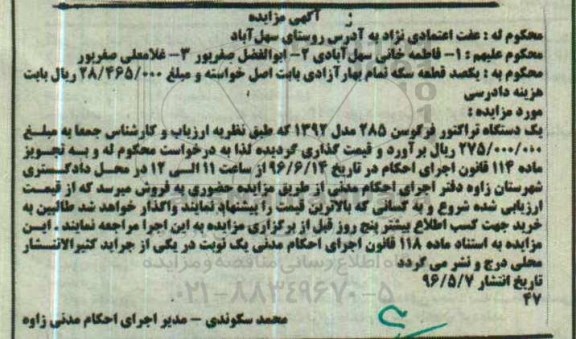 آگهی مزایده
محکوم له : عفت اعتمادی نژاد به آدرس روستای سهل‌آباد
محکوم علیهم : ۱- فاطمه خانی سهل‌آبادی ۲- ابوالفضل صفرپور ۳- غلامعلی صفرپور
محکوم به : یکصد قطعه سکه تمام بهارآزادی بابت اصل خواسته و مبلغ ۲۸/۴۶۵/۰۰۰ ریال بابت
هزینه دادرسی
مورد مزایده :
یک دستگاه تراکتور فرگوسن ۲۸۵ مدل ۱۳۹۲ که طبق نظریه ارزیاب و کارشناس جمعا به مبلغ
۲۷۵/۰۰۰/۰۰۰ ریال برآورد و قیمت گذاری گردیده لذا به درخواست محکوم له و به تجویز
ماده ۱۱۴ قانون اجرای احکام در تاریخ ۹۶/۶/۱۴ از ساعت ۱۱ الی ۱۲ در محل دادگستری
شهرستان زاوه دفتر اجرای احکام مدنی از طریق مزایده حضوری به فروش میرسد که از قیمت
ارزیابی شده شروع و به کسانی که بالاترین قیمت را پیشنهاد نمایند واگذار خواهد شد طالبین به
خرید جهت کسب اطلاع بیشتر پنج روز قبل از برگزاری مزایده به این اجرا مراجعه نمایند . این
مزایده به استناد ماده ۱۱۸ قانون اجرای احکام مدنی یک نوبت در یکی از جراید کثیرالانتشار
محلی درج و نشر می گردد
تاریخ انتشار ۹۶/۵/۷
۴۷
محمد سکوندی - مدیر اجرای احکام مدنی زاوه
اطلاع رسانی مناقصه و مزایده
۰۲۱-۸۸۳۴۹۶۷۰-۵